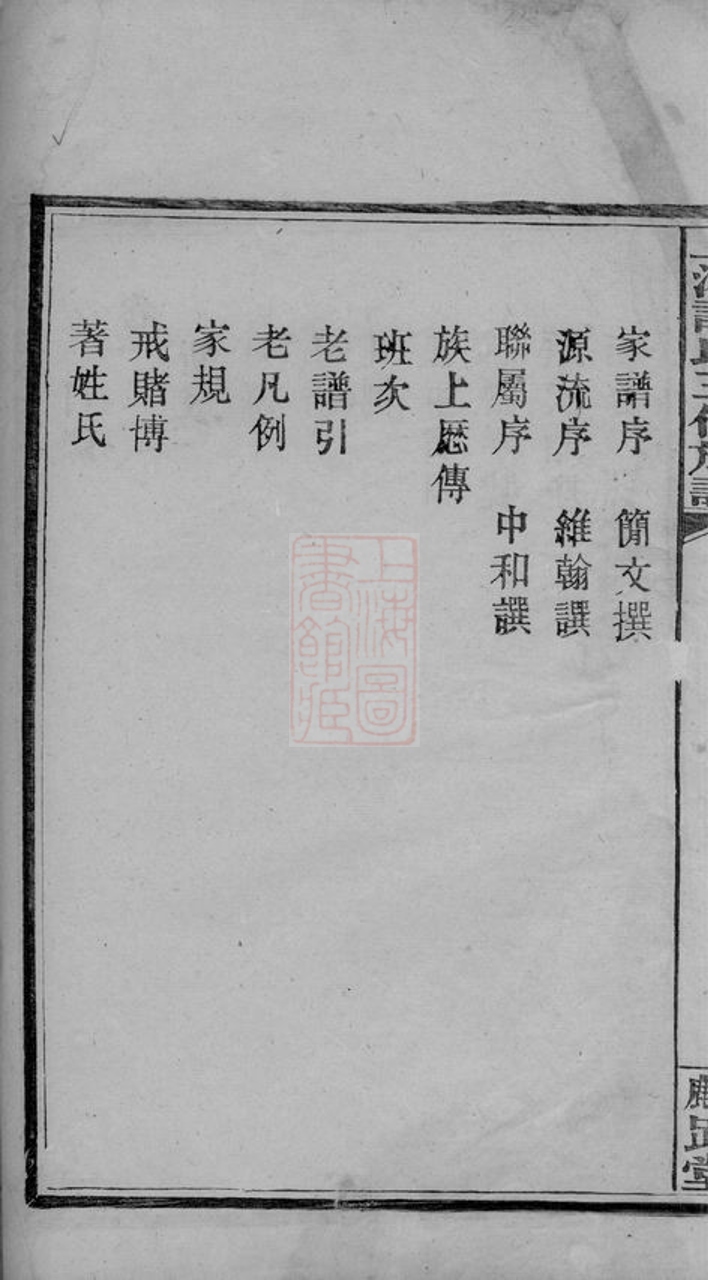 家譜序 簡文撰
源流序 維翰譔
聯屬序 中和譔
族上厯傳
班次
老譜引
老凡例
家規
戒賭博
著姓氏
上海圖
書館藏
氏三修族譜
趾堂